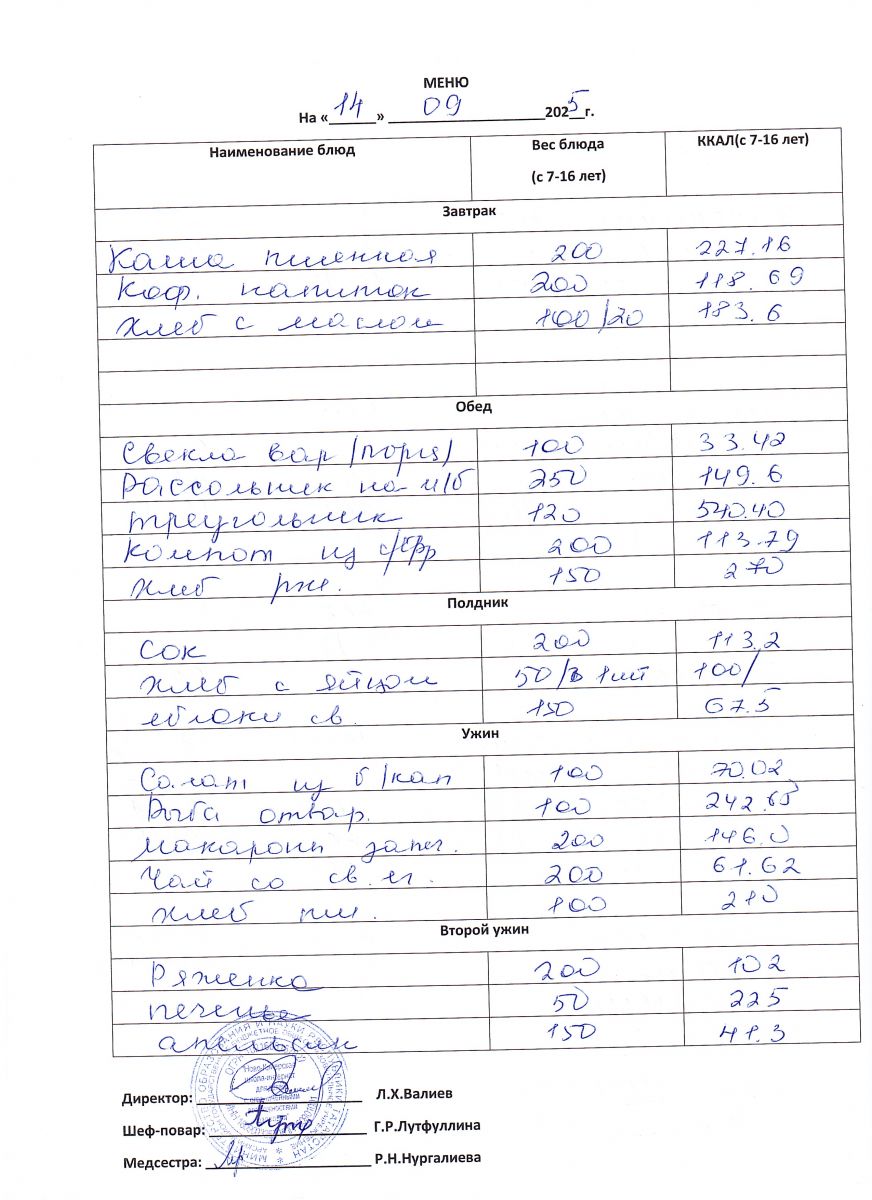 МЕНЮ
На «14» 09 2025 г.
Наименование блюд Вес блюда (с 7-16 лет) ККАЛ(с 7-16 лет)
Завтрак
Каша пшенная 200 227.16
Коф. напиток 200 118.69
Хлеб с маслом 100/20 183.6
Обед
Свекла вар/порц/ 100 33.42
Рассольник на м/б 250 149.6
треугольник 120 540.40
Компот из с/фр 200 113.79
Хлеб рж. 150 270
Полдник
Сок 200 113,2
Хлеб с яйцом 50/1шт 100/
яблоки св. 150 67.5
Ужин
Салат из б/кап 100 70.02
Рыба отвар. 100 242.65
макароны запеч. 200 146.0
Чай со св.яг. 200 61.62
Хлеб пш. 100 210
Второй ужин
Ряженка 200 102
печенье 50 225
апельсин 150 41.3
Директор: Л.Х.Валиев
Шеф-повар: Г.Р.Лутфуллина
Медсестра: Р.Н.Нургалиева